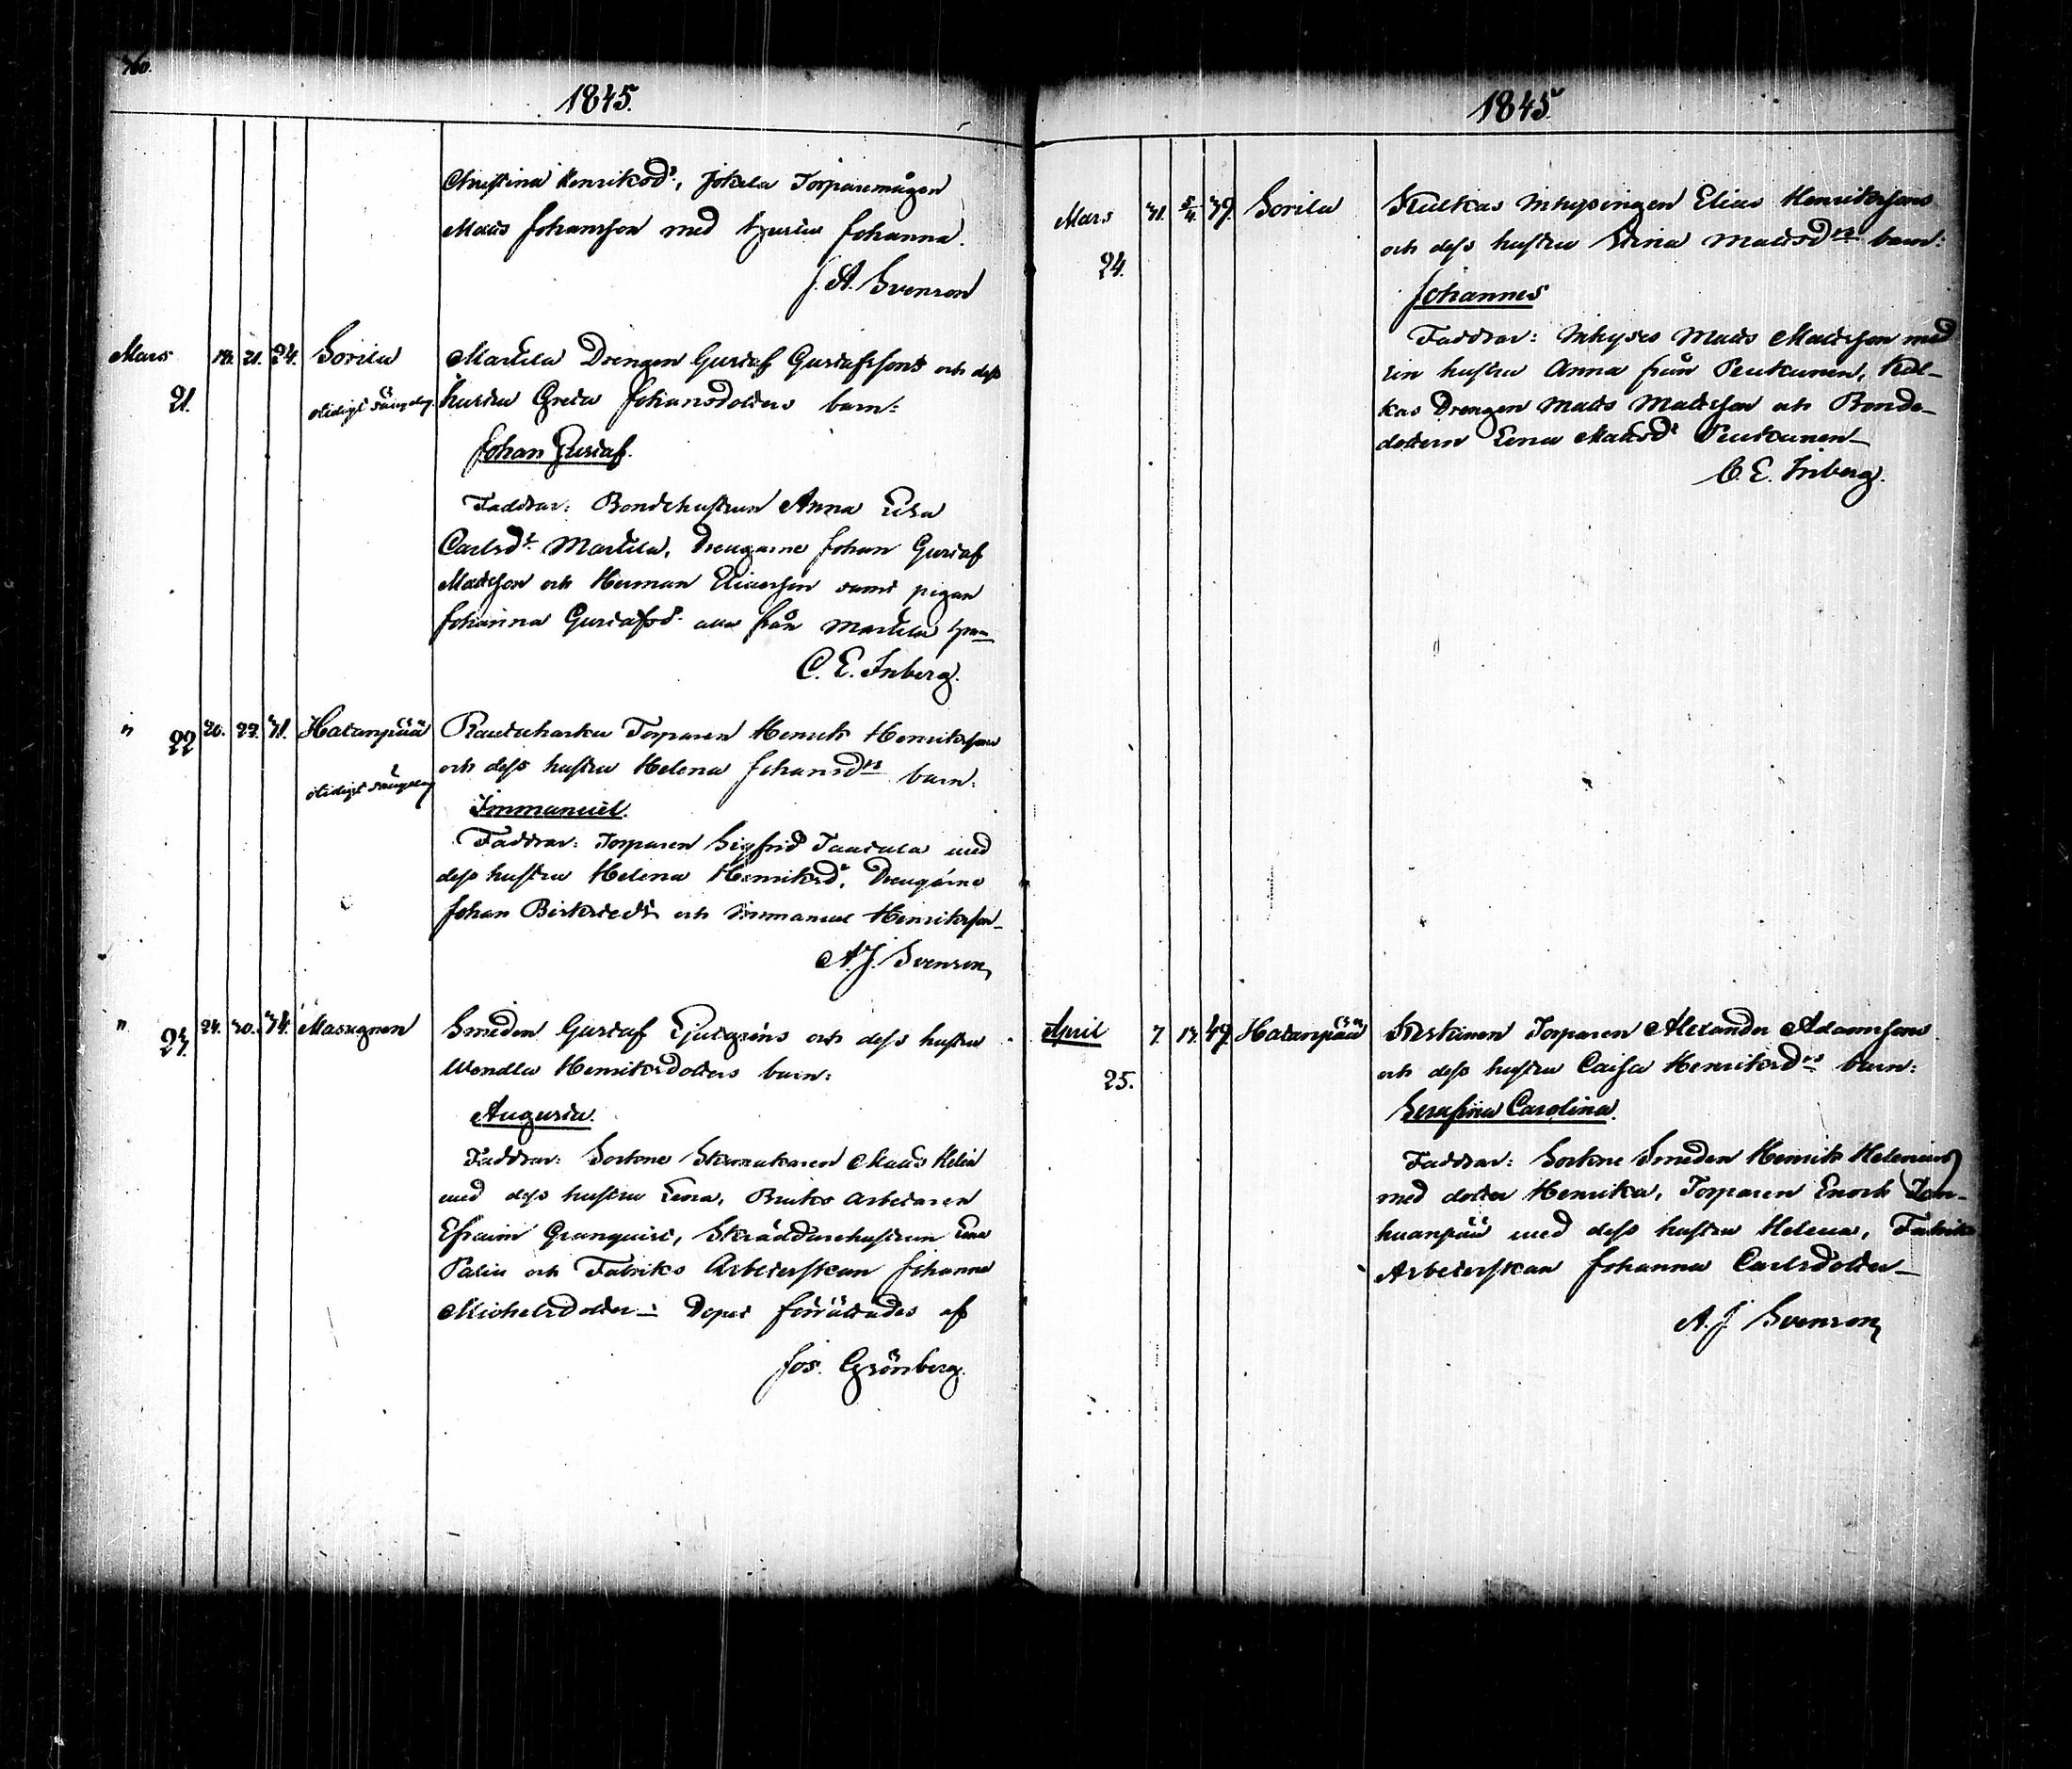 1845.
Christina Henriksdr, Jokela Torparemågen
Matts Johansson med hustru Johanna.
J. A. Svenson
Mars 21. 19. 21. 24. Sorila
Marttila Drengen Gustaf Gustafssons och dess
hustru Greta Johansdotters barn:
Johan Gustaf.
Faddrar: Bondehustrun Anna Lisa
Carlsdr Marttila, Drengarne Johan Gustaf
Mattsson och Herman Eliasson samt pigan
Johanna Gustafsd. alla från Marttila
C. E. Inberg.
" 22 20. 23. 31. Hatanpää
Rautaharku Torparen Henrik Henrikssons
och dess hustru Helena Johansdrs barn:
Immanuel.
Faddrar: Torparen Sigfrid Taatala med
dess hustru Helena Henriksdr, Drengarne
Johan Birkstedt och Immanuel Henriksson
A. J. Svenson
" 23. 24. 30. 34. Masugnen
Smeden Gustaf och dess hustru
Wendla Henriksdotters barn:
Augusta.
Faddrar: Sockne Skomakaren Matts Helin
med dess hustru Lena, Bruks arbetaren
Efraim Granquist, Skräddarehustrun Lena
Palin och Fabriks Arbeterskan Johanna
Michelsdotter — Dopet förrättades af
Jos. Grönberg.
1845
Mars 24. 31. 5/4. 39. Sorila
Kulkas Inhysingen Elias Henrikssons
och dess hustru Stina Mattsdrs barn:
Johannes
Faddrar: Inhyses Matts Mattsson med
sin hustru Anna från Penttinen, Kul-
kas Drengen Matts Mattsson och Bonde-
dottern Lena Mattsdr Penttinen
C. E. Inberg.
April 25. 7. 13. 49. Hatanpää
Keskinen Torparen Alexander Adamssons
och dess hustru Caisa Henriksdrs barn:
Serafina Carolina.
Faddrar: Sockne Smeden Henrik Helenius
med dotter Henrika, Torparen Enoch
huanpää med dess hustru Helena, Fabriks
Arbeterskan Johanna Carlsdotter
A. J. Svenson